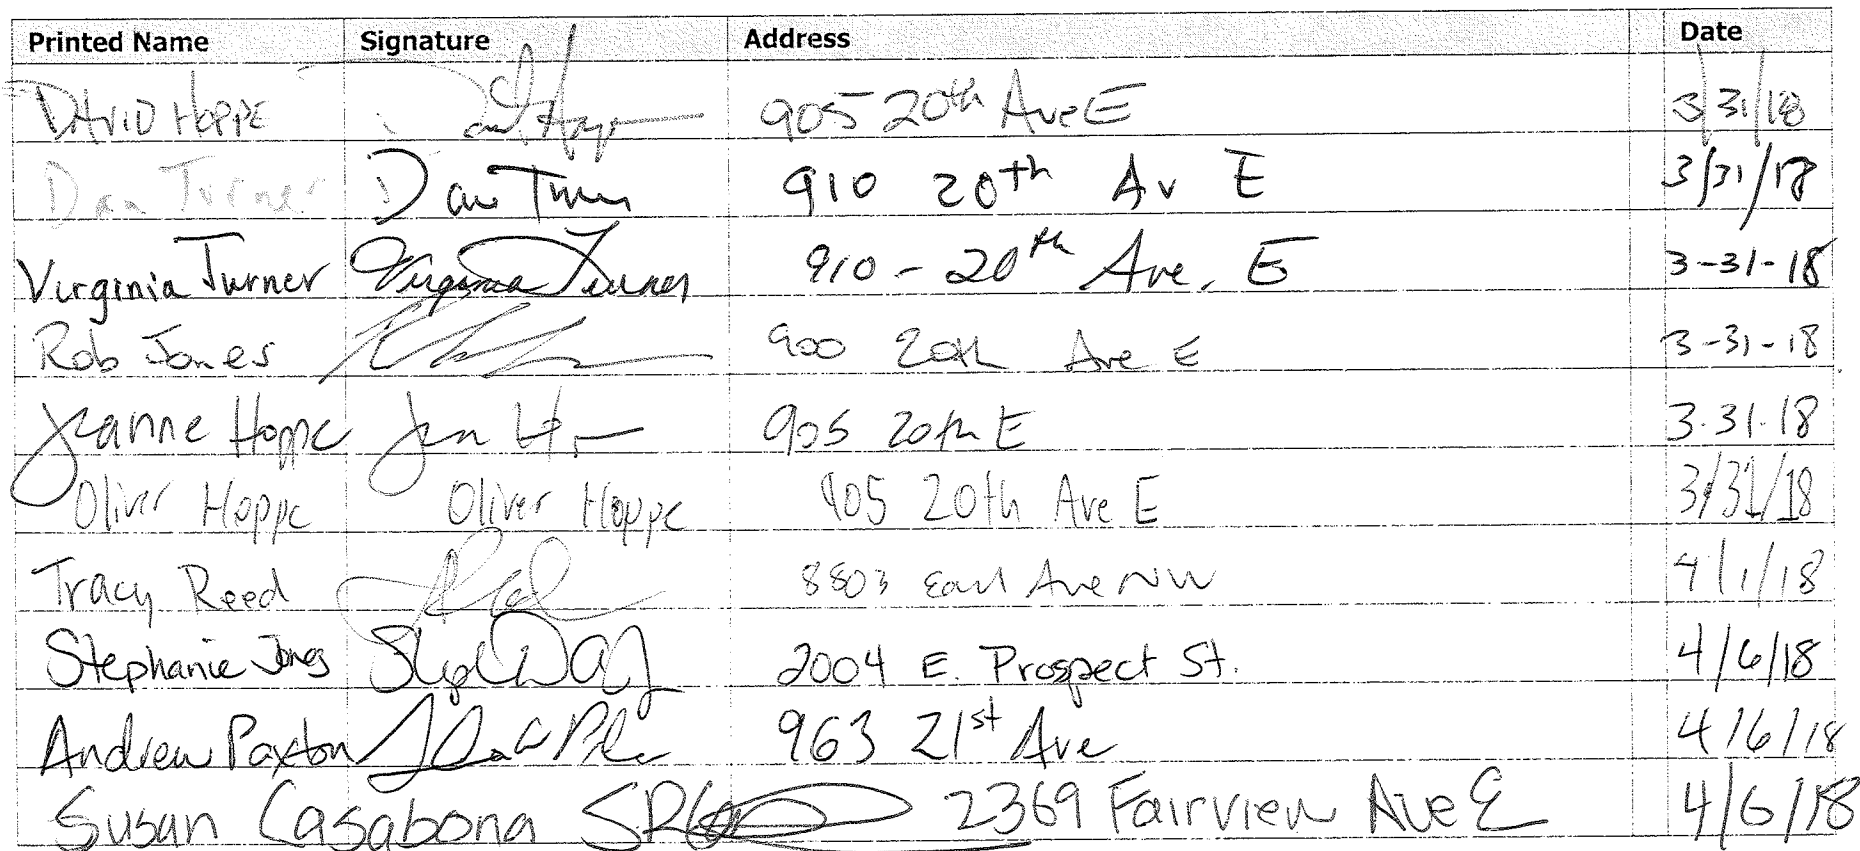 Printed Name Signature Address Date
DAVID HOPPE 905 20th Ave E 3/31/18
Dan Turner Dan Turner 910 20th Av E 3/31/18
Virginia Turner Virginia Turner 910 - 20th Ave. E 3-31-18
Rob Jones 900 20th Ave E 3-31-18
Jeanne Hoppe 905 20th E 3.31.18
Oliver Hoppe Oliver Hoppe 905 20th Ave E 3/31/18
Tracy Reed 8803 Earl Ave NW 4/1/18
Stephanie Jones 2004 E. Prospect St. 4/6/18
Andrew Paxton 963 21st Ave 4/6/18
Susan Casabona 2369 Fairview Ave E 4/6/18